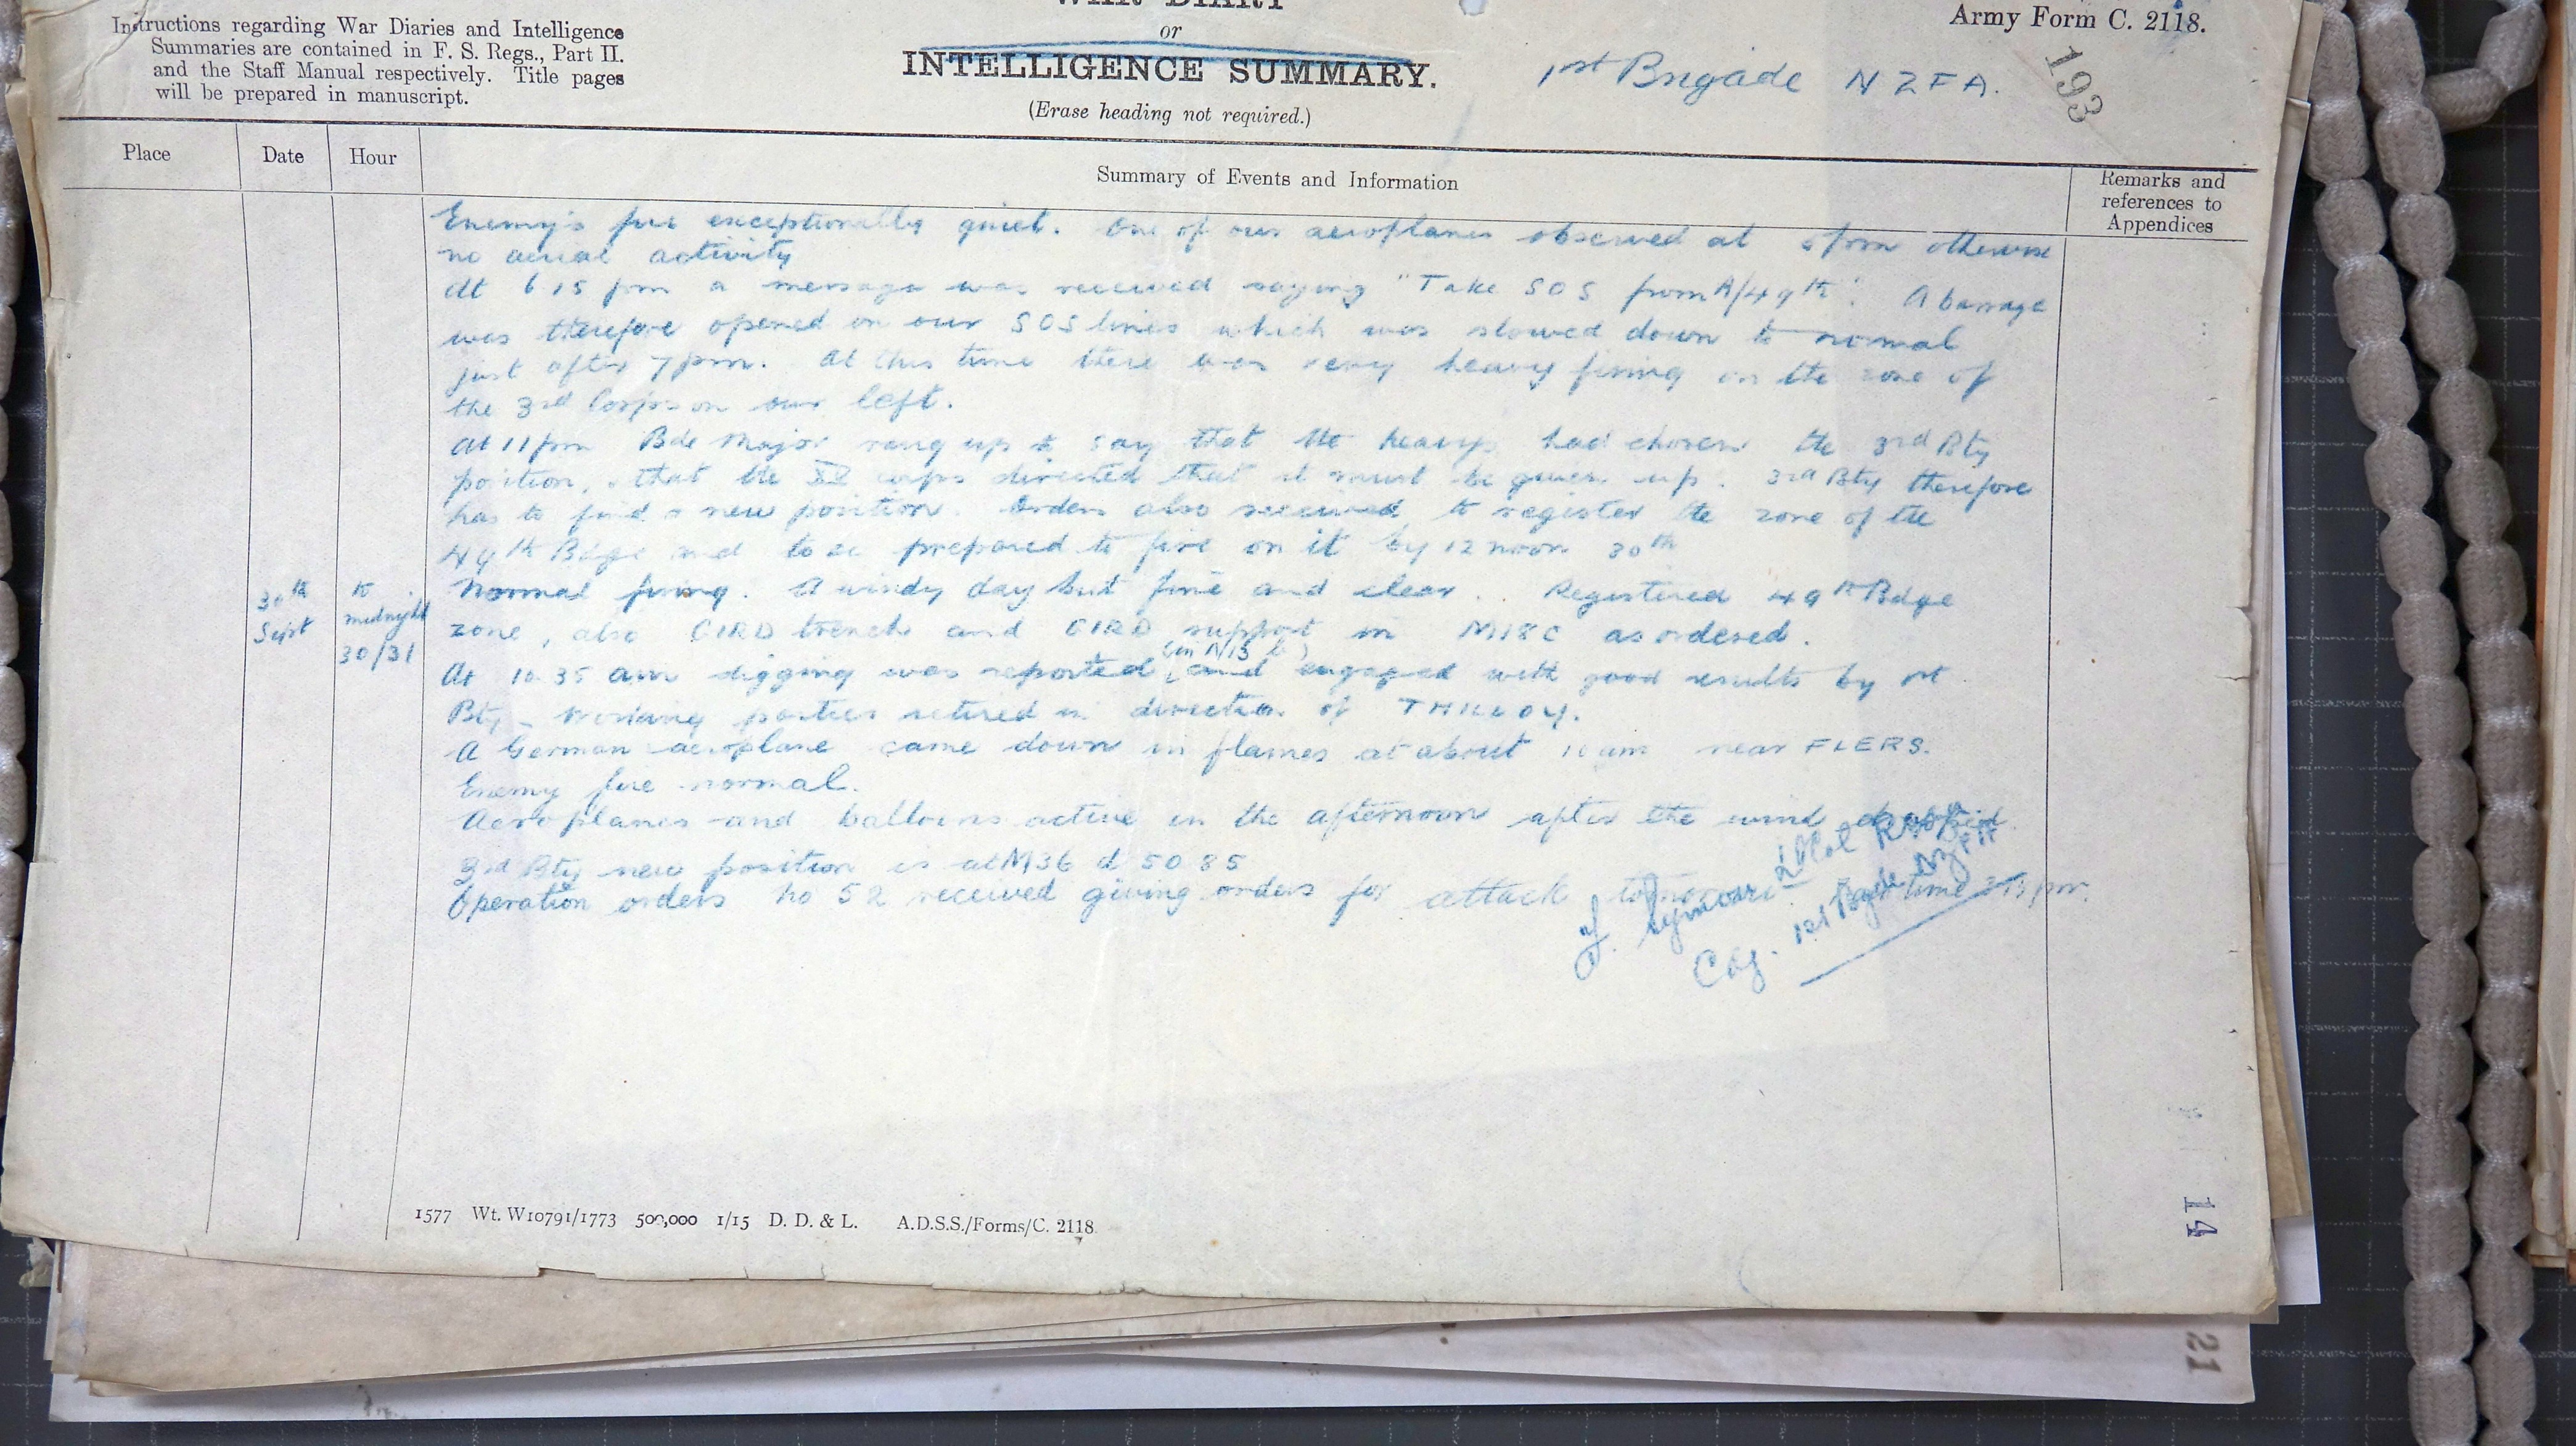 WAR DIARY
or
INTELLIGENCE SUMMARY.
(Erase heading not required.)
Instructions regarding War Diaries and Intelligence
Summaries are contained in F. S. Regs., Part II.
and the Staff Manual respectively. Title pages
will be prepared in manuscript.
Army Form C. 2118.
1st Brigade NZFA.
193
Place
Date
Hour
Summary of Events and Information
Remarks and
references to
Appendices
Enemy's fire exceptionally quiet. One of our aeroplanes observed at pm otherwise
no aerial activity
At 6 15 pm a message was received saying "Take SOS from A/49th". A barrage
was therefore opened on our SOS lines which was slowed down to normal
just after 7pm. At this time there was very heavy firing on the zone of
the 3rd Corps on our left.
At 11pm Bde Major rang up to say that the heavys had chosen the 3rd Bty
position, & that the XV corps directed that it must be given up. 3rd Bty therefore
has to find a new position. Orders also received to register the zone of the
49th Bdge and to be prepared to fire on it by 12 noon 30th
30th
Sept
to
midnight
30/31
Normal firing. A windy day but fine and clear. Registered 49th Bdge
zone, also GIRD trench and GIRD support in M18C as ordered.
(in N13 b)
At 10 35 am digging was reported, and engaged with good results by 1st
Bty - Working parties retired in direction of THILLOY.
A German aeroplane came down in flames at about 10 am near FLERS.
Enemy fire normal.
Aeroplanes and balloons active in the afternoon after the wind dropped.
3rd Bty new position is at M36 d 50 85
Operation orders no 52 received giving orders for attack tomorrow time 3 15 pm.
F. Symon Lt Col
Cdg. 1st Bgde NZFA
1577 Wt. W10791/1773 500,000 1/15 D. D. & L. A.D.S.S./Forms/C. 2118.
14
21